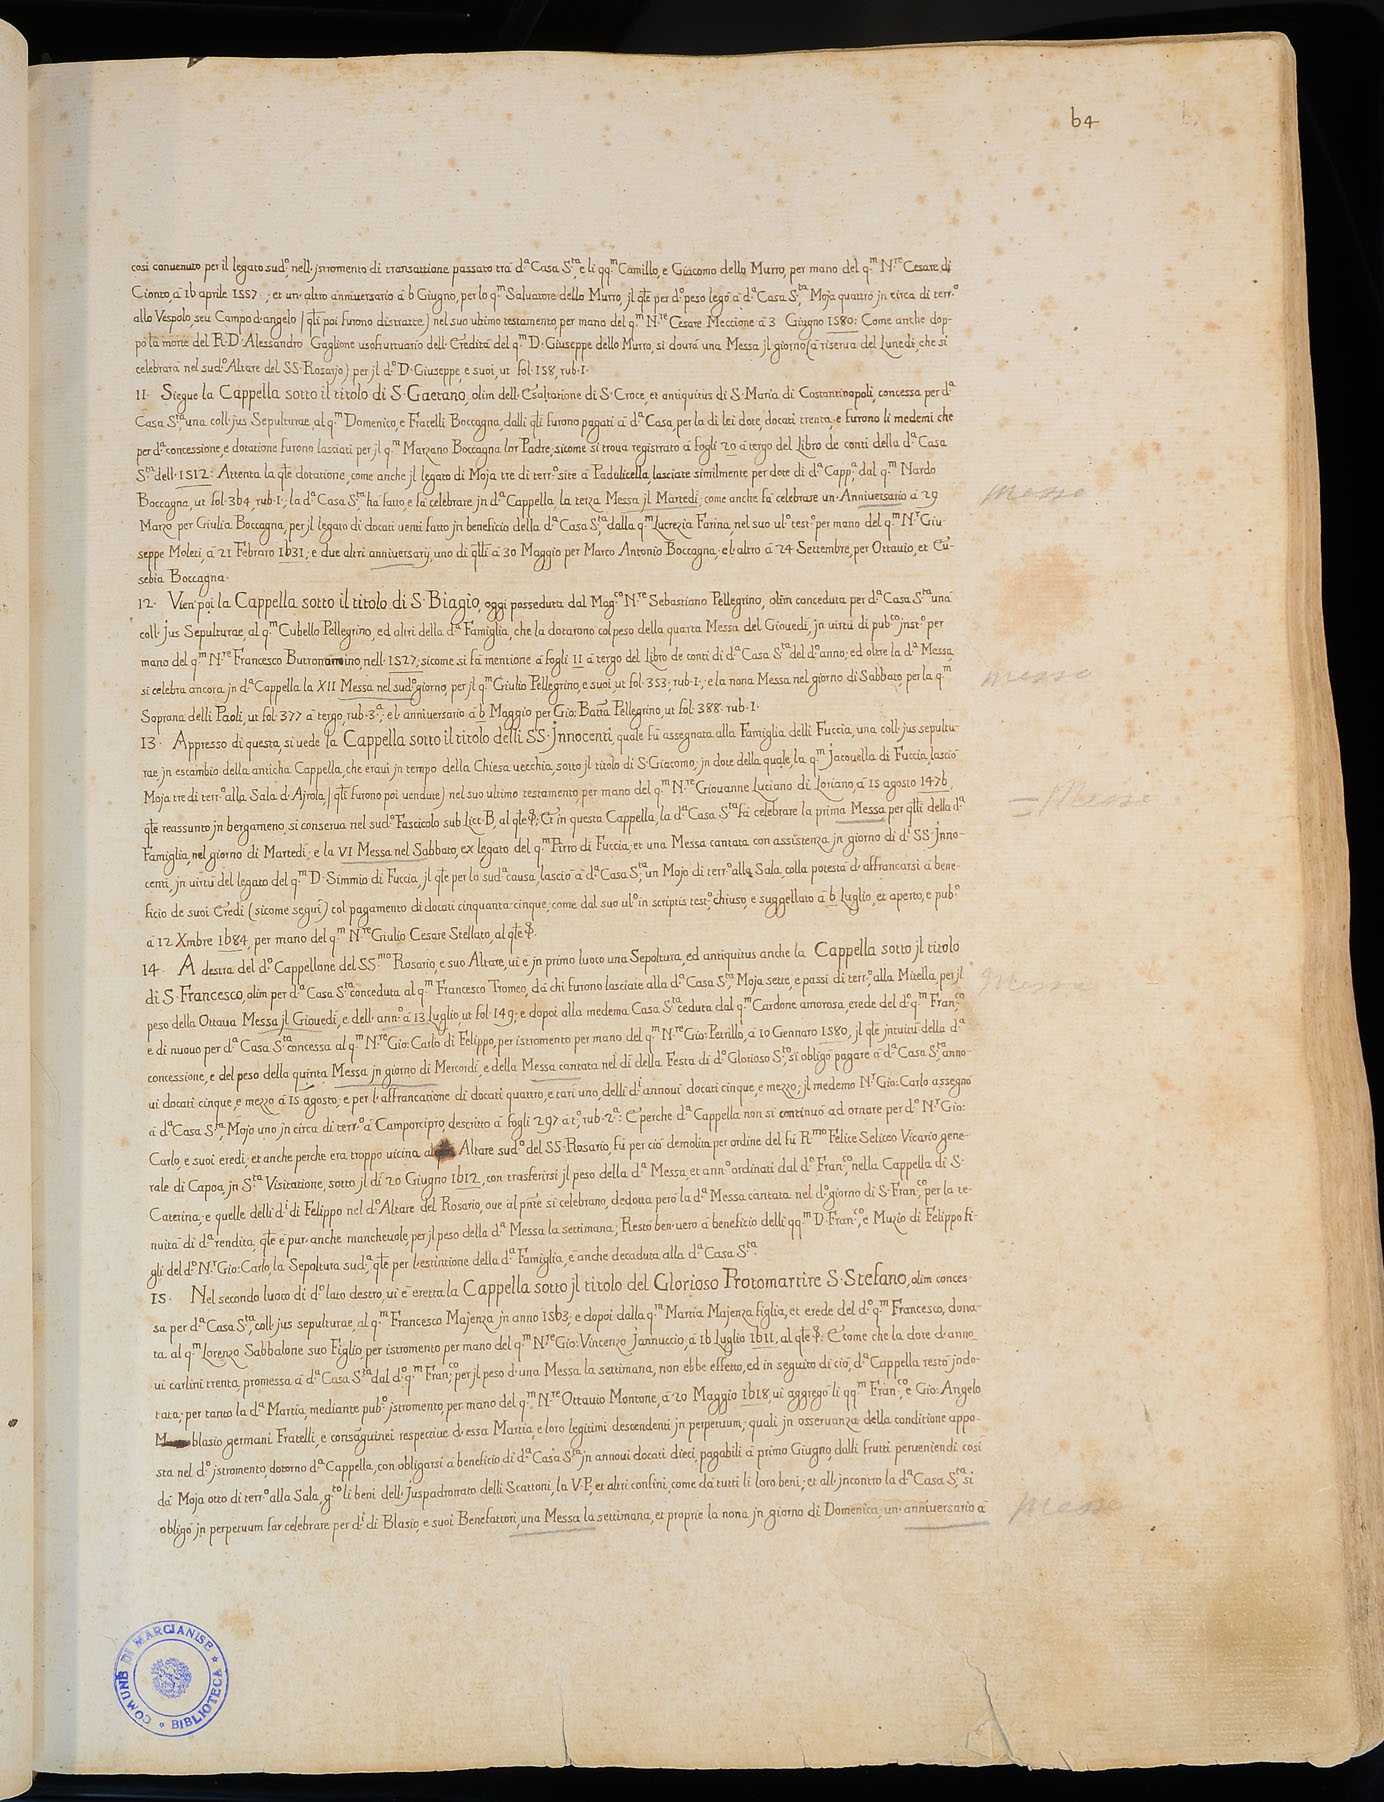 64
così conuenuto per il legato sud.º, nell'jstromento di transattione passato trà d.ª Casa S.ta, e li qq.m Camillo, e Giacomo dello Murro, per mano del q.m N.re Cesare di
Cionto, à 16 aprile 1557 ; et un' altro anniuersario à 6 Giugno, per lo q.m Saluatore dello Murro, jl q̃le per d.º peso legò à d.ª Casa S.ta Moja quattro jn circa di terr.º
allo Vespolo, seu Campo d'angelo (q̃li poi furono distratte) nel suo ultimo testamento, per mano del q.m N.re Cesare Meccione à 3 Giugno 1580: Come anche dop-
pò la morte del R.D. Alessandro Gaglione usofruttuario dell'Eredità del q.m D. Giuseppe dello Murro, si dourà una Messa jl giorno (à riserua del Lunedi, che si
celebrarà nel sud.º Altare del SS. Rosarjo) per jl d.º D. Giuseppe, e suoi, ut fol. 158, rub. 1.
11. Siegue la Cappella sotto il titolo di S. Gaetano, olim dell'Esaltatione di S. Croce, et antiquitus di S. Maria di Costantinopoli, concessa per d.ª
Casa S.ta, una coll'jus Sepulturae, al q.m Domenico, e Fratelli Boccagna, dalli q̃li furono pagati à d.ª Casa, per la di lei dote, docati trenta, e furono li medemi che
per d.ª concessione, e dotatione furono lasciati per jl q.m Marzano Boccagna lor Padre, sicome si troua registrato à fogli 20 à tergo del Libro de conti della d.ª Casa
S.ta dell' 1512: Attenta la q̃le dotatione, come anche jl legato di Moja tre di terr.º site à Padulicella, lasciate similmente per dote di d.ª Capp.ª dal q.m Nardo
Boccagna, ut fol. 364, rub. 1; la d.ª Casa S.ta, hà fatto, e fà celebrare jn d.ª Cappella, la terza Messa jl Martedì; come anche fà celebrare un' Anniuersario à 29
Messe
Marzo per Giulia Boccagna, per jl legato di docati uenti fatto jn beneficio della d.ª Casa S.ta dalla q.m Lucrezia Farina, nel suo ul.º test.º per mano del q.m N.r Giu-
seppe Moleti, à 21 Febraro 1631; e due altri anniuersarij, uno di q̃lli à 30 Maggio per Marco Antonio Boccagna, e l'altro à 24 Settembre, per Ottauio, et Eu-
sebia Boccagna.
12. Vien'poi la Cappella sotto il titolo di S. Biagio, oggi posseduta dal Mag.co N.re Sebastiano Pellegrino, olim conceduta per d.ª Casa S.ta una
coll'jus Sepulturae, al q.m Cubello Pellegrino, ed altri della d.ª Famiglia, che la dotarono col peso della quarta Messa del Giouedì, jn uirtù di pub.co jnst.º per
mano del q.m N.re Francesco Buttronomino, nell' 1527; sicome si fà mentione à fogli 11 à tergo del Libro de conti di d.ª Casa S.ta del d.º anno; ed oltre la d.ª Messa,
si celebra ancora jn d.ª Cappella la XII Messa nel sud.º giorno, per jl q.m Giulio Pellegrino, e suoi, ut fol. 353, rub. 1; e la nona Messa nel giorno di Sabbato per la q.m
Messe
Soprana delli Paoli, ut fol. 377 à tergo, rub. 3.ª; e l'anniuersario à 6 Maggio per Gio: Batt̃a Pellegrino, ut fol. 388 rub. 1.
13. Appresso di questa, si uede la Cappella sotto il titolo delli SS. Jnnocenti, quale fù assegnata alla Famiglia delli Fuccia, una coll'jus sepultu-
rae, jn escambio della anticha Cappella, che eraui jn tempo della Chiesa uecchia, sotto jl titolo di S. Giacomo; jn dote della quale, la q.m Jacouella di Fuccia, lasciò
Moja tre di terr.º alla Sala d'Ajrola, (q̃li furono poi uendute) nel suo ultimo testamento, per mano del q.m N.re Giouanne Luciano di Loriano, à 15 agosto 1476,
= Messe
q̃le reassunto jn bergameno, si conserua nel sud.º Fascicolo sub Litt. B, al q̃le §; Et in questa Cappella, la d.ª Casa S.ta fà celebrare la prima Messa, per q̃lli della d.ª
Famiglia, nel giorno di Martedì; e la VI Messa nel Sabbato, ex legato del q.m Pirro di Fuccia; et una Messa cantata con assistenza jn giorno di d.i SS. Jnno-
centi, jn uirtù del legato del q.m D. Simmio di Fuccia, jl q̃le per la sud.ª causa, lasciò à d.ª Casa S.ta un Mojo di terr.º alla Sala, colla potestà d'affrancarsi à bene-
ficio de suoi Eredi (sicome seguì) col pagamento di docati cinquanta cinque, come dal suo ul.º in scriptis test.º chiuso, e suggellato à 6 Luglio, et aperto, e pub.º
à 12 Xmbre 1684, per mano del q.m N.re Giulio Cesare Stellato, al q̃le §.
14. A destra del d.º Cappellone del SS.mo Rosario, e suo Altare, ui è jn primo luoco una Sepoltura, ed antiquitus anche la Cappella sotto jl titolo
di S. Francesco, olim per d.ª Casa S.ta conceduta al q.m Francesco Tromeo, dà chi furono lasciate alla d.ª Casa S.ta Moja sette, e passi di terr.º alla Mitella, per jl
Messa
peso della Ottaua Messa jl Giouedì, e dell'ann.º à 13 Luglio, ut fol. 149; e dopoi alla medema Casa S.ta ceduta dal q.m Cardone amorosa, erede del d.º q.m Fran.co,
e di nuouo per d.ª Casa S.ta concessa al q.m N.re Gio: Carlo di Felippo, per istromento per mano del q.m N.re Gio: Petrillo, à 10 Gennaro 1580, jl q̃le jntuitu della d.ª
concessione, e del peso della quinta Messa jn giorno di Mercordì, e della Messa cantata nel dì della Festa di d.º Glorioso S.to, si obligò pagare à d.ª Casa S.ta anno-
ui docati cinque, e mezzo à 15 agosto; e per l'affrancatione di docati quattro, e tarì uno, delli d.i annoui docati cinque, e mezzo; jl medemo N.r Gio: Carlo assegnò
à d.ª Casa S.ta, Mojo uno jn circa di terr.º à Camporcipro, descritto à fogli 297 à t.º, rub. 2.ª: E perche d.ª Cappella non si continuò ad ornare per d.º N.r Gio:
Carlo, e suoi eredi; et anche perche era troppo uicina al Altare sud.º del SS. Rosario, fù per ciò demolita per ordine del fù R.mo Felice Seliceo Vicario gene-
rale di Capoa, jn S.ta Visitatione, sotto jl dì 20 Giugno 1612, con trasferirsi jl peso della d.ª Messa, et ann.º ordinati dal d.º Fran.co, nella Cappella di S.
Caterina; e quelle delli d.i di Felippo nel d.º Altare del Rosario, oue al pñte si celebrano, dedotta però la d.ª Messa cantata nel d.º giorno di S. Fran.co, per la te-
nuità di d.ª rendita, q̃le è pur' anche mancheuole, per jl peso della d.ª Messa la settimana; Restò ben'uero à beneficio delli qq.m D. Fran.co, e Muzio di Felippo fi-
gli del d.º N.r Gio: Carlo, la Sepoltura sud.ª, q̃le per l'estintione della d.ª Famiglia, è anche decaduta alla d.ª Casa S.ta.
15. Nel secondo luoco di d.º lato destro, ui è eretta la Cappella sotto jl titolo del Glorioso Protomartire S. Stefano, olim conces-
sa per d.ª Casa S.ta, coll'jus sepulturae, al q.m Francesco Majenza jn anno 1563; e dopoi dalla q.m Martia Majenza figlia, et erede del d.º q.m Francesco, dona-
ta al q.m Lorenzo Sabbalone suo Figlio, per istromento per mano del q.m N.re Gio: Vincenzo Jannuccio, à 16 Luglio 1611, al q̃le §: E come che la dote d'anno-
ui carlini trenta, promessa à d.ª Casa S.ta dal d.º q.m Fran.co per jl peso d'una Messa la settimana, non ebbe effetto, ed in seguito di ciò, d.ª Cappella restò jndo-
tata; per tanto la d.ª Martia, mediante pub.º jstromento, per mano del q.m N.re Ottauio Montone, à 20 Maggio 1618, ui aggregò li qq.m Fran.co, e Gio: Angelo
blasio germani Fratelli, e consãguinei respectiue d'essa Martia, e loro legitimi descendenti jn perpetuum; quali jn osseruanza della conditione appo-
sta nel d.º jstromento, dotorno d.ª Cappella, con obligarsi à beneficio di d.ª Casa S.ta jn annoui docati dieci, pagabili à primo Giugno, dalli frutti perueniendi così
dà Moja otto di terr.º alla Sala, g.to li beni dell'Juspadronato delli Scattoni, la V.P., et altri confini, come dà tutti li loro beni; et all'jncontro la d.ª Casa S.ta, si
obligò jn perpetuum far celebrare per d.i di Blasio, e suoi Benefattori, una Messa la settimana, et proprie la nona jn giorno di Domenica, un' anniuersario à
Messe
COMUNE DI MARCIANISE * BIBLIOTECA